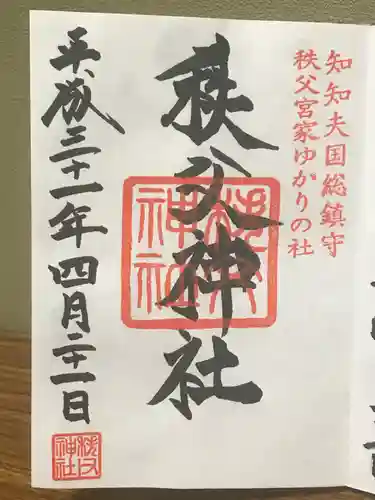 知知夫国総鎮守
秩父宮家ゆかりの社
秩父神社
秩父神社
平成三十一年四月二十一日
秩父神社